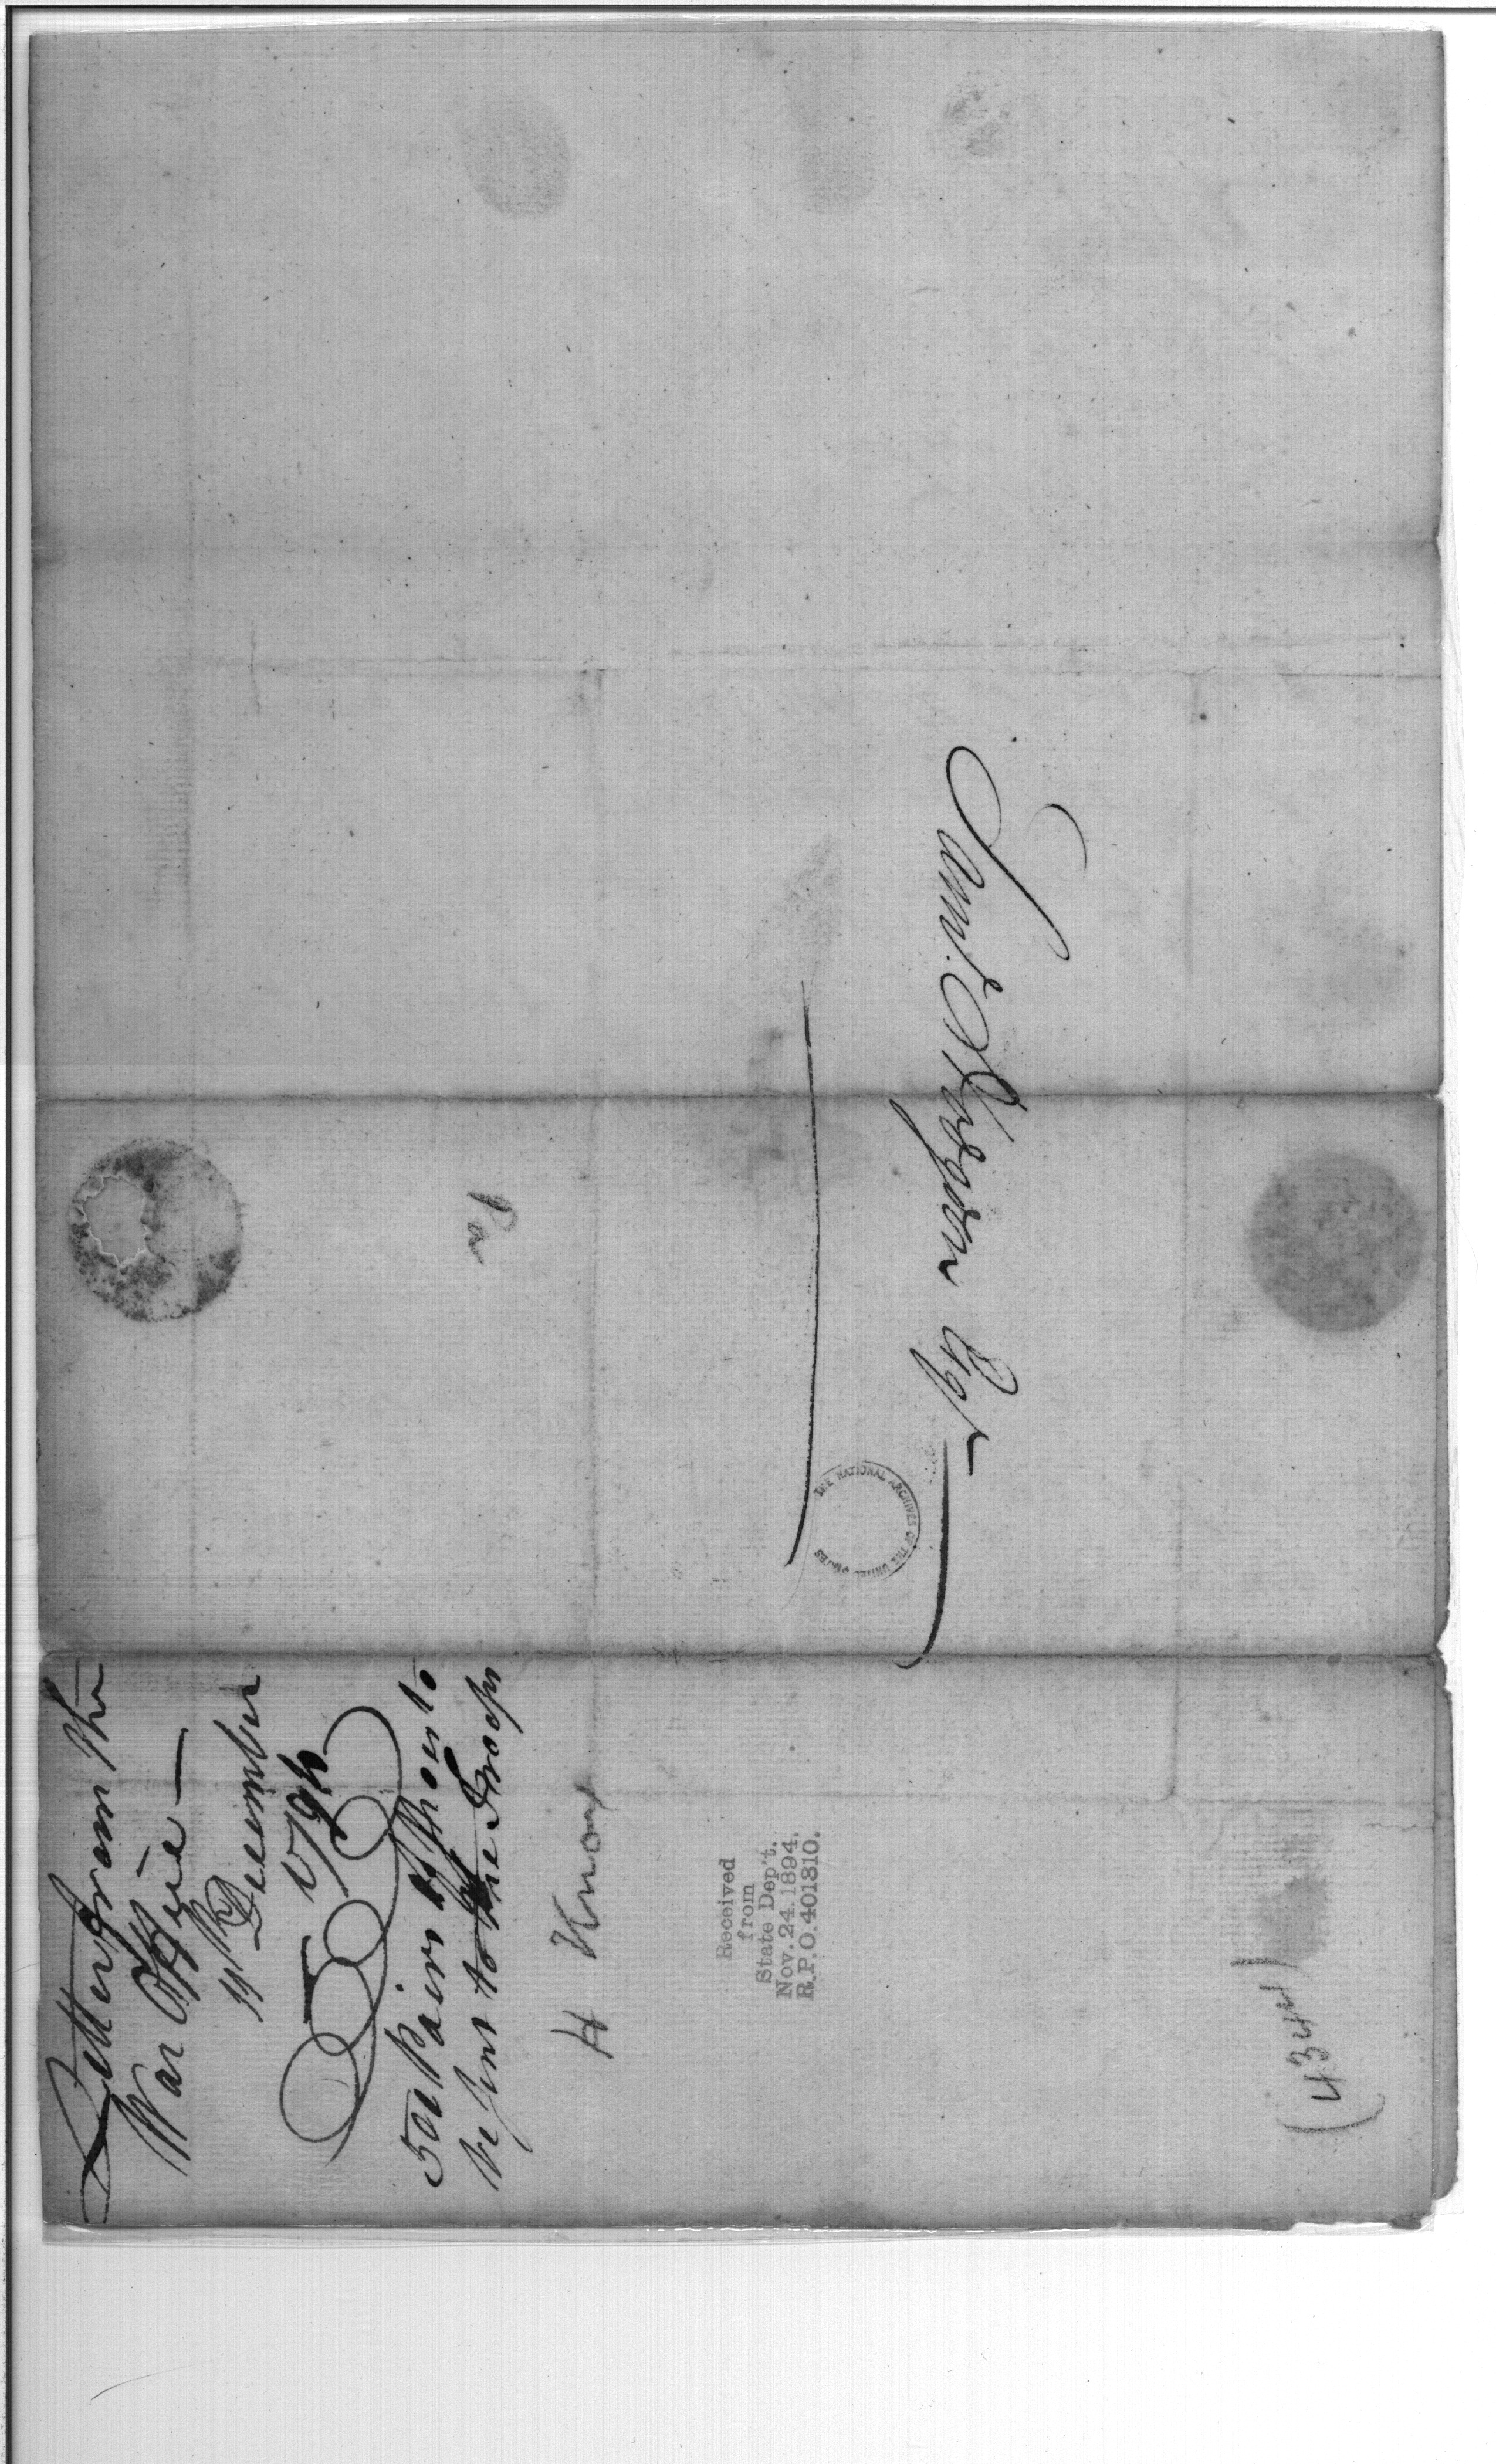 Saml. Hodgdon Esqr.
Pa
Letter from the
War Office —
11th December
1794
500 Pairs of Shoes to
be sent to the Troops
H Knox
Received
from
State Dep't.
Nov. 24. 1894.
R.P.O. 401310.
(4344)
THE NATIONAL ARCHIVES OF THE UNITED STATES